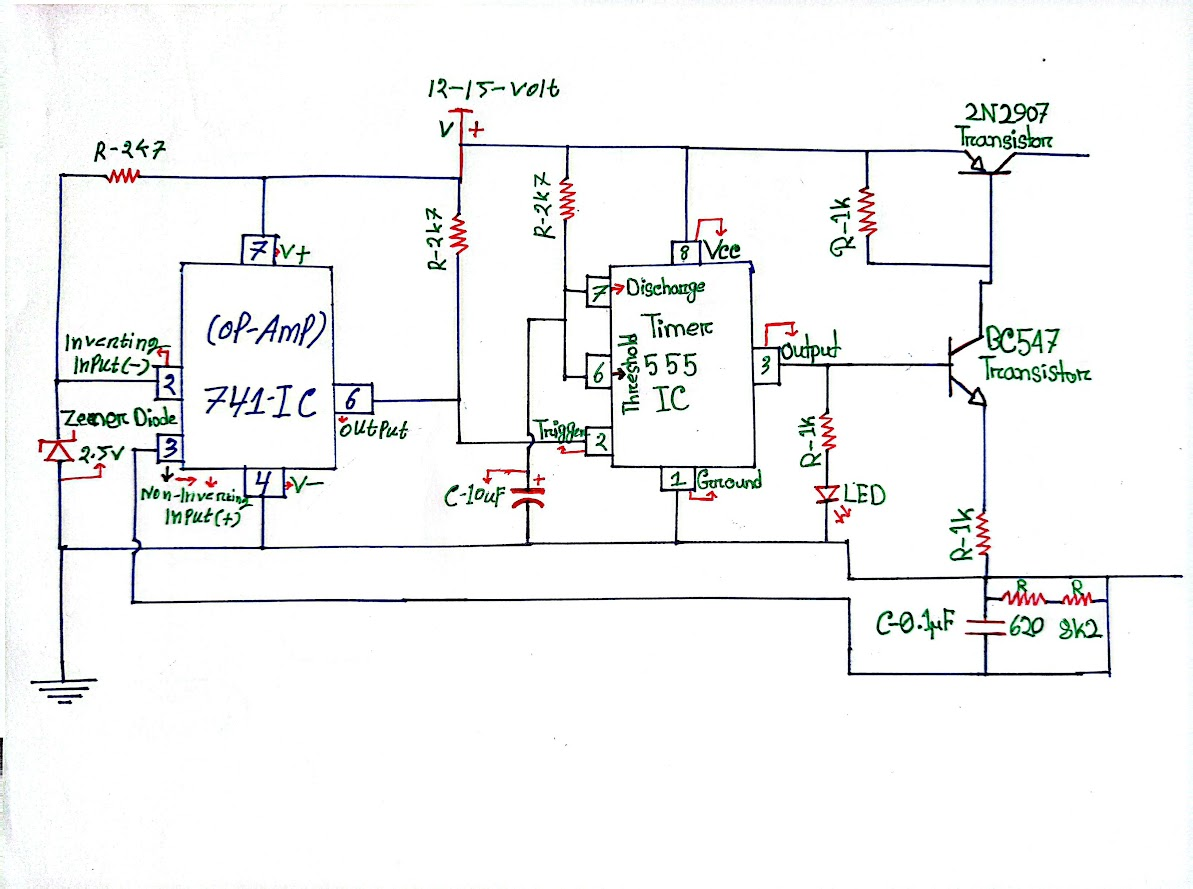 12-15-volt
V +
2N2907
Transistor
R-2k7
R-2k7
R-2k7
R-1k
7 V+
8 Vcc
(OP-AMP)
741-IC
7 Discharge
Timer
555
IC
6 Threshold
3 Output
BC547
Transistor
Inverting
Input(-)
2
6
Output
Zeener Diode
2.5V
3
Non-Inverting
Input(+)
4 V-
Trigger
2
C-10uF
+
1 Ground
R-1k
LED
R-1k
R R
C-0.1µF
620 8k2